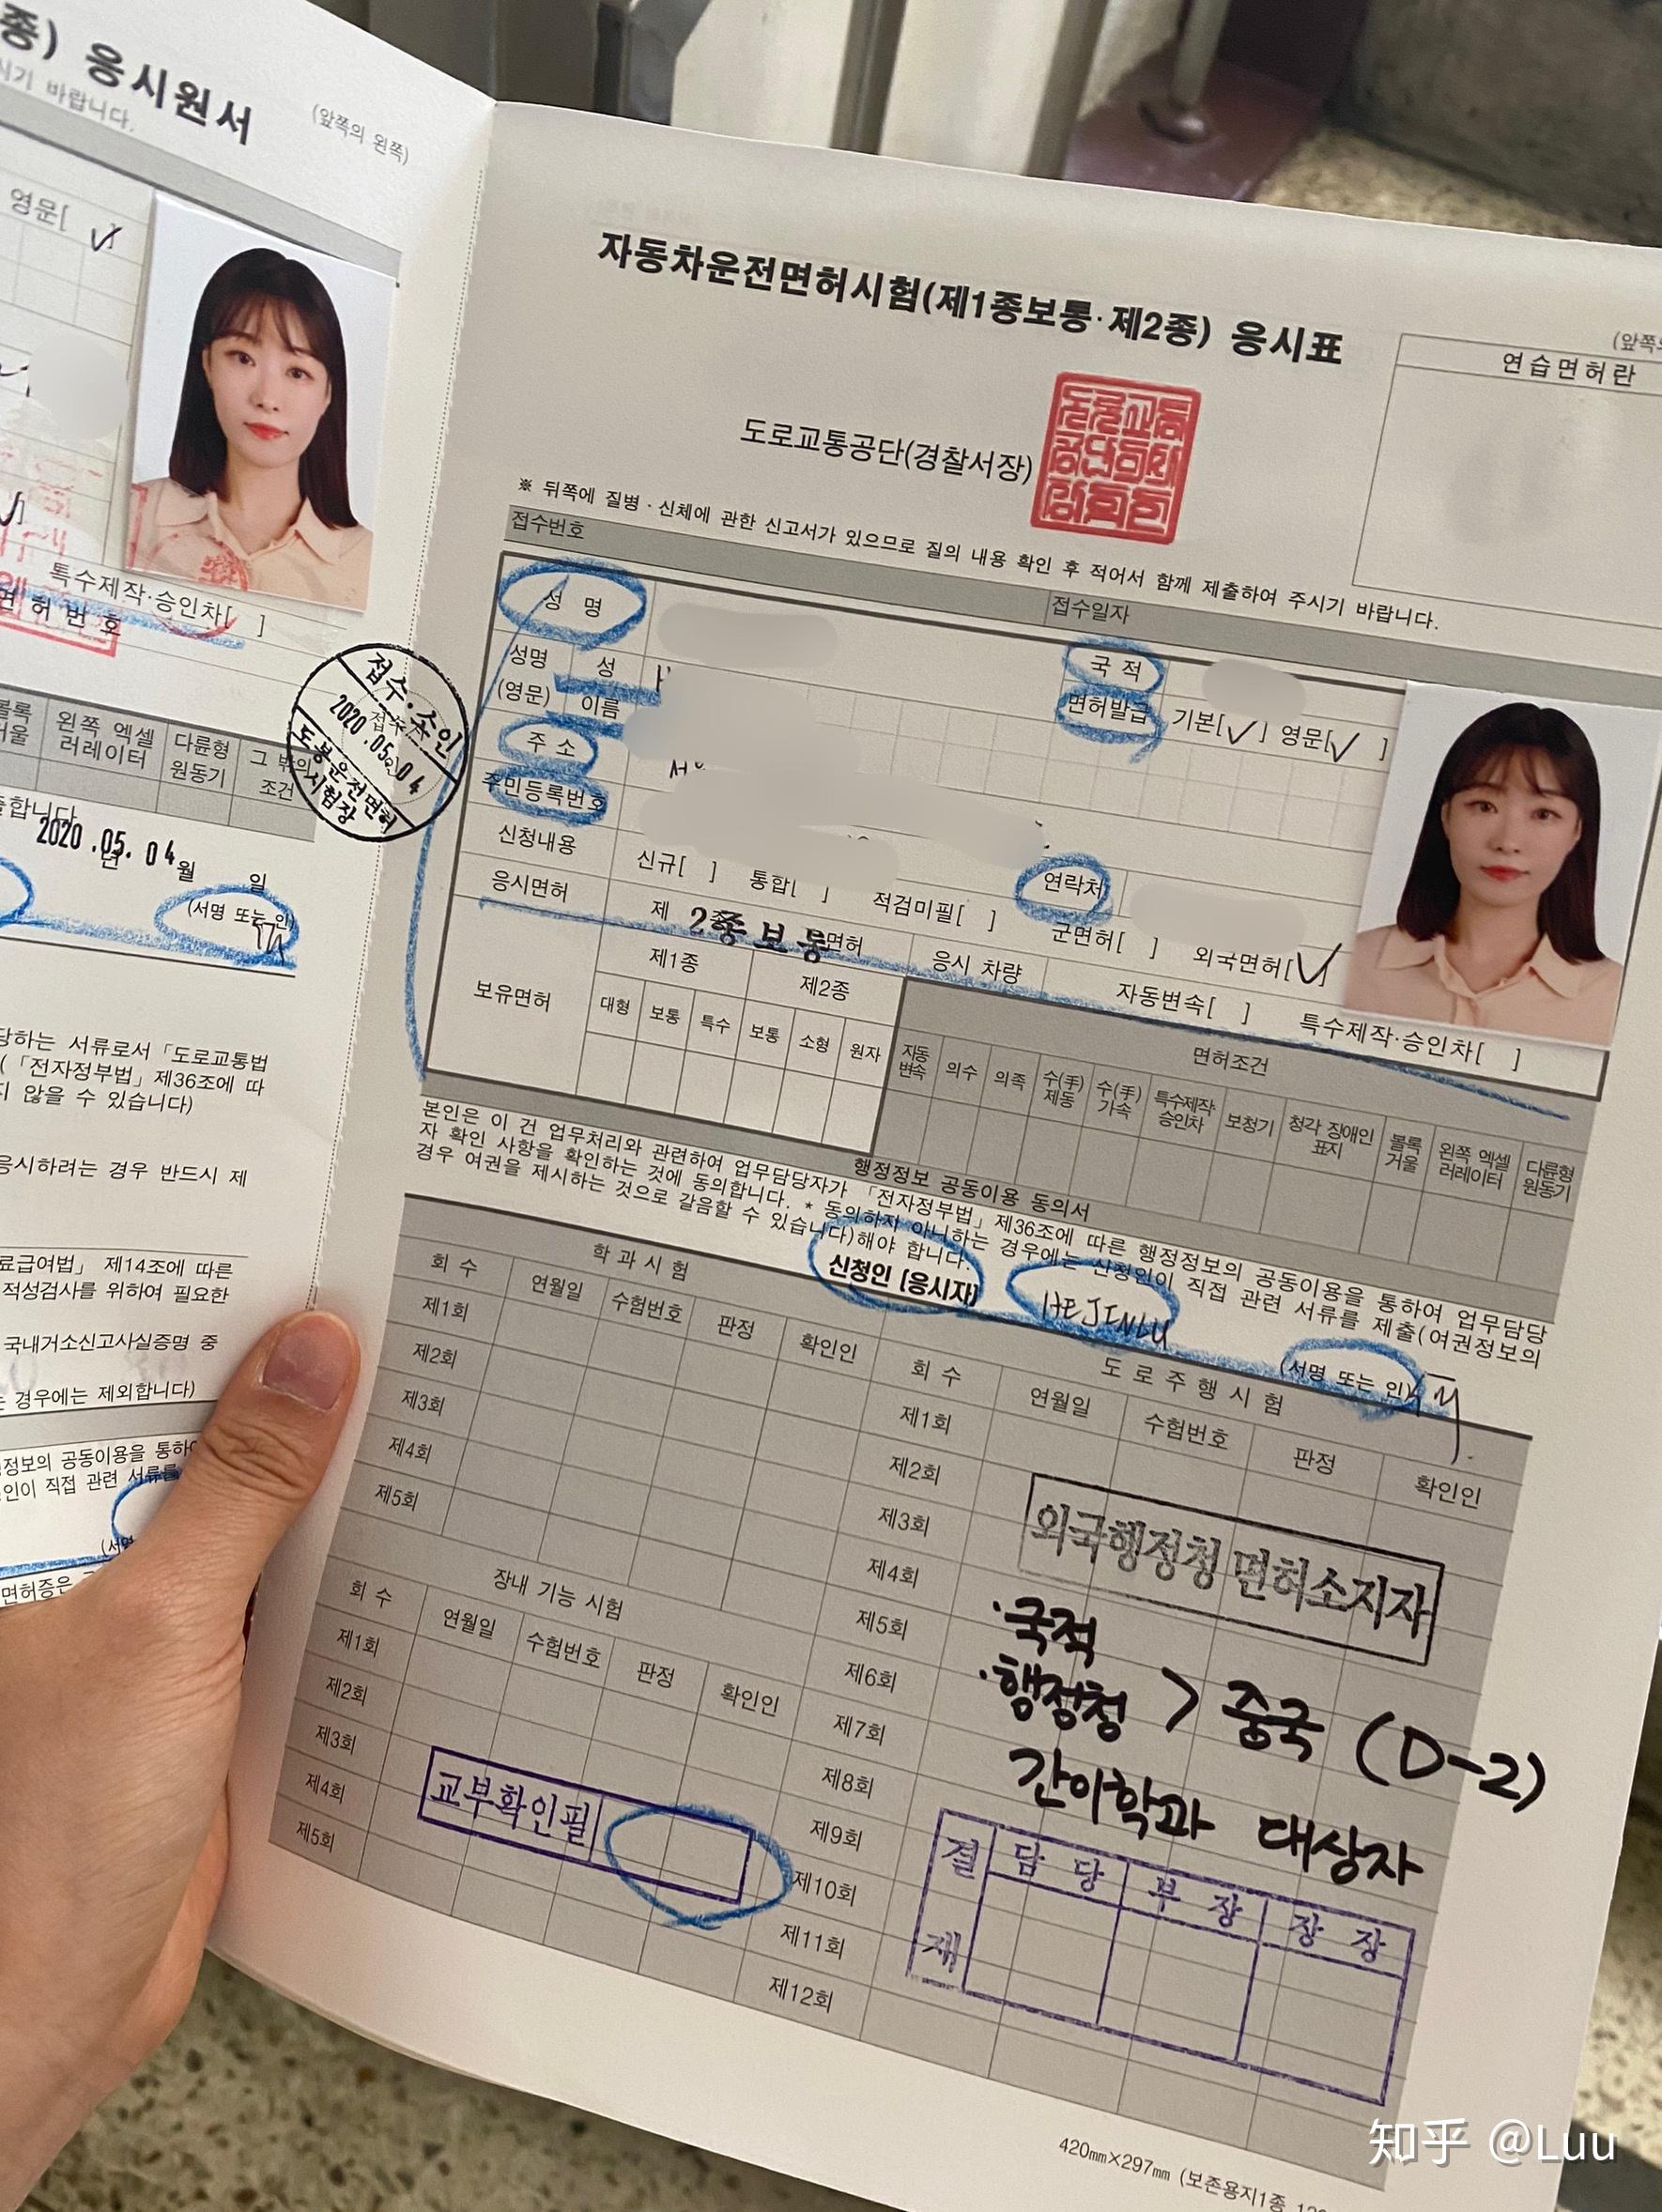 종) 응시원서
시기 바랍니다.
(앞쪽의 왼쪽)
영문[ ✓]
특수제작·승인차[ ]
면 허 번 호
볼록 거울
왼쪽 엑셀 러레이터
다륜형 원동기
그 밖의 조건
2020.05.04
년 월 일
(서명 또는 인)
접수·수인
2020.05.04
도봉운전면허
시험장
당하는 서류로서 「도로교통법
(「전자정부법」 제36조에 따
지 않을 수 있습니다)
응시하려는 경우 반드시 제
료급여법」 제14조에 따른
적성검사를 위하여 필요한
국내거소신고사실증명 중
는 경우에는 제외합니다)
정보의 공동이용을 통하여
인이 직접 관련 서류를
(서명
면허증은
자동차운전면허시험(제1종보통·제2종) 응시표
연습면허란
도로교통공단(경찰서장)
※ 뒤쪽에 질병·신체에 관한 신고서가 있으므로 질의 내용 확인 후 적어서 함께 제출하여 주시기 바랍니다.
접수번호
접수일자
성 명
국 적
성명 (영문)
성
이름
면허발급
기본[✓] 영문[✓ ]
주 소
주민등록번호
연락처
신청내용
신규[ ] 통합[ ] 적검미필[ ] 군면허[ ] 외국면허[✓]
응시면허
제 2종보통 면허
응시 차량
자동변속[ ] 특수제작·승인차[ ]
보유면허
제1종
제2종
면허조건
대형 보통 특수 보통 소형 원자
자동변속 의수 의족 수(手)제동 수(手)가속 특수제작·승인차 보청기 청각 장애인 표지 볼록거울 왼쪽 엑셀러레이터 다륜형 원동기
행정정보 공동이용 동의서
본인은 이 건 업무처리와 관련하여 업무담당자가 「전자정부법」 제36조에 따른 행정정보의 공동이용을 통하여 업무담당
자 확인 사항을 확인하는 것에 동의합니다. * 동의하지 아니하는 경우에는 신청인이 직접 관련 서류를 제출(여권정보의
경우 여권을 제시하는 것으로 갈음할 수 있습니다)해야 합니다.
신청인 [응시자]
HEJINLU
(서명 또는 인)
학 과 시 험
회 수 연월일 수험번호 판정 확인인
제1회
제2회
제3회
제4회
제5회
장내 기능 시험
회 수 연월일 수험번호 판정 확인인
제1회
제2회
제3회
제4회
제5회
교부확인필
도 로 주 행 시 험
회 수 연월일 수험번호 판정 확인인
제1회
제2회
제3회
제4회
제5회
제6회
제7회
제8회
제9회
제10회
제11회
제12회
외국행정청 면허소지자
·국적
·행정청 > 중국 (D-2)
간이학과 대상자
결 재
담 당
부 장
장 장
420㎜×297㎜ (보존용지1종
知乎 @Luu